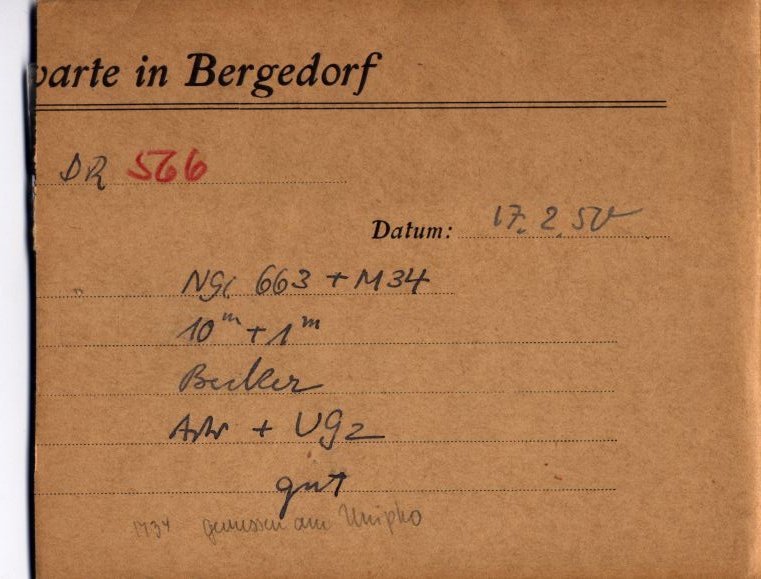 warte in Bergedorf
DR 566
Datum: 17. 2. 50
NGC 663 + M34
10ᵐ + 1ᵐ
Becker
+ UG2
gut
M34 gemessen am Unipho